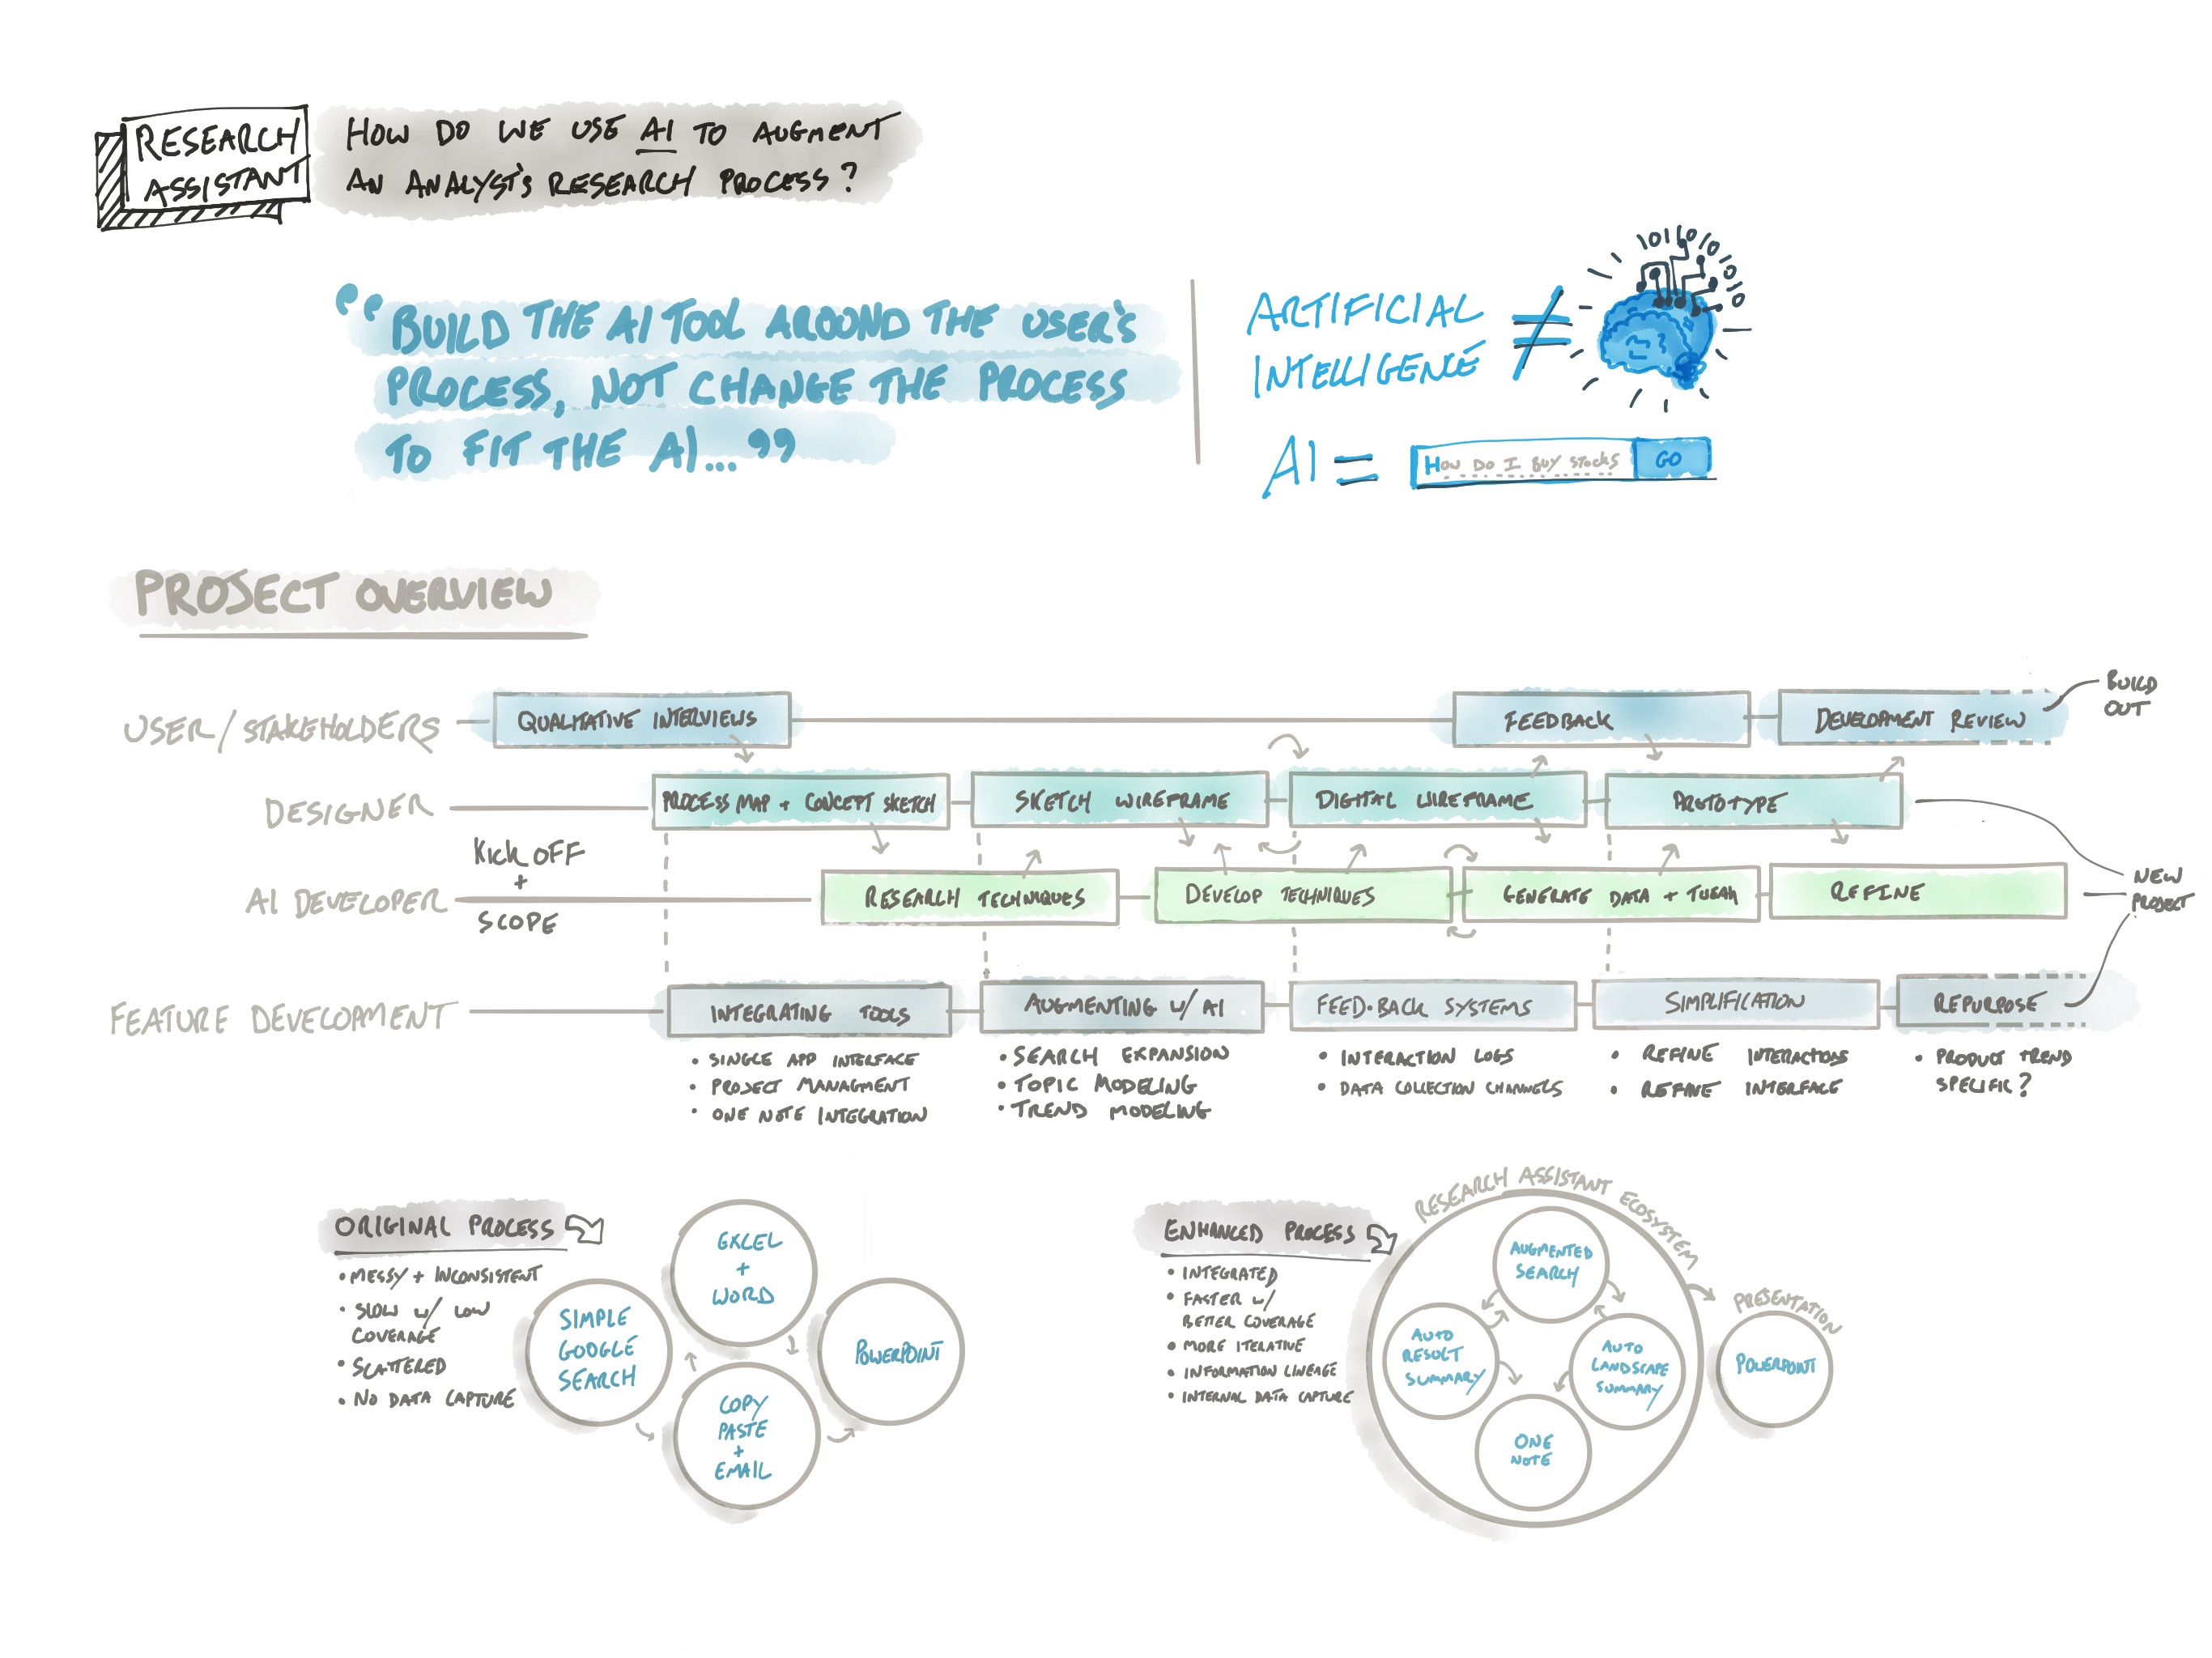 RESEARCH
ASSISTANT
HOW DO WE USE AI TO AUGMENT
AN ANALYST'S RESEARCH PROCESS?
“BUILD THE AI TOOL AROUND THE USER'S
PROCESS, NOT CHANGE THE PROCESS
TO FIT THE AI...”
ARTIFICIAL
INTELLIGENCE ≠
10110101010
AI = HOW DO I BUY STOCKS GO
PROJECT OVERVIEW
USER/STAKEHOLDERS
QUALITATIVE INTERVIEWS
FEEDBACK
DEVELOPMENT REVIEW
BUILD
OUT
DESIGNER
PROCESS MAP + CONCEPT SKETCH
SKETCH WIREFRAME
DIGITAL WIREFRAME
PROTOTYPE
KICK OFF
+
SCOPE
AI DEVELOPER
RESEARCH TECHNIQUES
DEVELOP TECHNIQUES
GENERATE DATA + TWEAK
REFINE
NEW
PROJECT
FEATURE DEVELOPMENT
INTEGRATING TOOLS
• SINGLE APP INTERFACE
• PROJECT MANAGMENT
• ONE NOTE INTEGRATION
AUGMENTING W/ AI
• SEARCH EXPANSION
• TOPIC MODELING
• TREND MODELING
FEED-BACK SYSTEMS
• INTERACTION LOGS
• DATA COLLECTION CHANNELS
SIMPLIFICATION
• REFINE INTERACTIONS
• REFINE INTERFACE
REPURPOSE
• PRODUCT TREND
SPECIFIC?
ORIGINAL PROCESS
• MESSY + INCONSISTENT
• SLOW W/ LOW
COVERAGE
• SCATTERED
• NO DATA CAPTURE
SIMPLE
GOOGLE
SEARCH
EXCEL
+
WORD
COPY
PASTE
+
EMAIL
POWERPOINT
ENHANCED PROCESS
• INTEGRATED
• FASTER W/
BETTER COVERAGE
• MORE ITERATIVE
• INFORMATION LINEAGE
• INTERNAL DATA CAPTURE
RESEARCH ASSISTANT ECOSYSTEM
AUGMENTED
SEARCH
AUTO
RESULT
SUMMARY
AUTO
LANDSCAPE
SUMMARY
ONE
NOTE
PRESENTATION
POWERPOINT